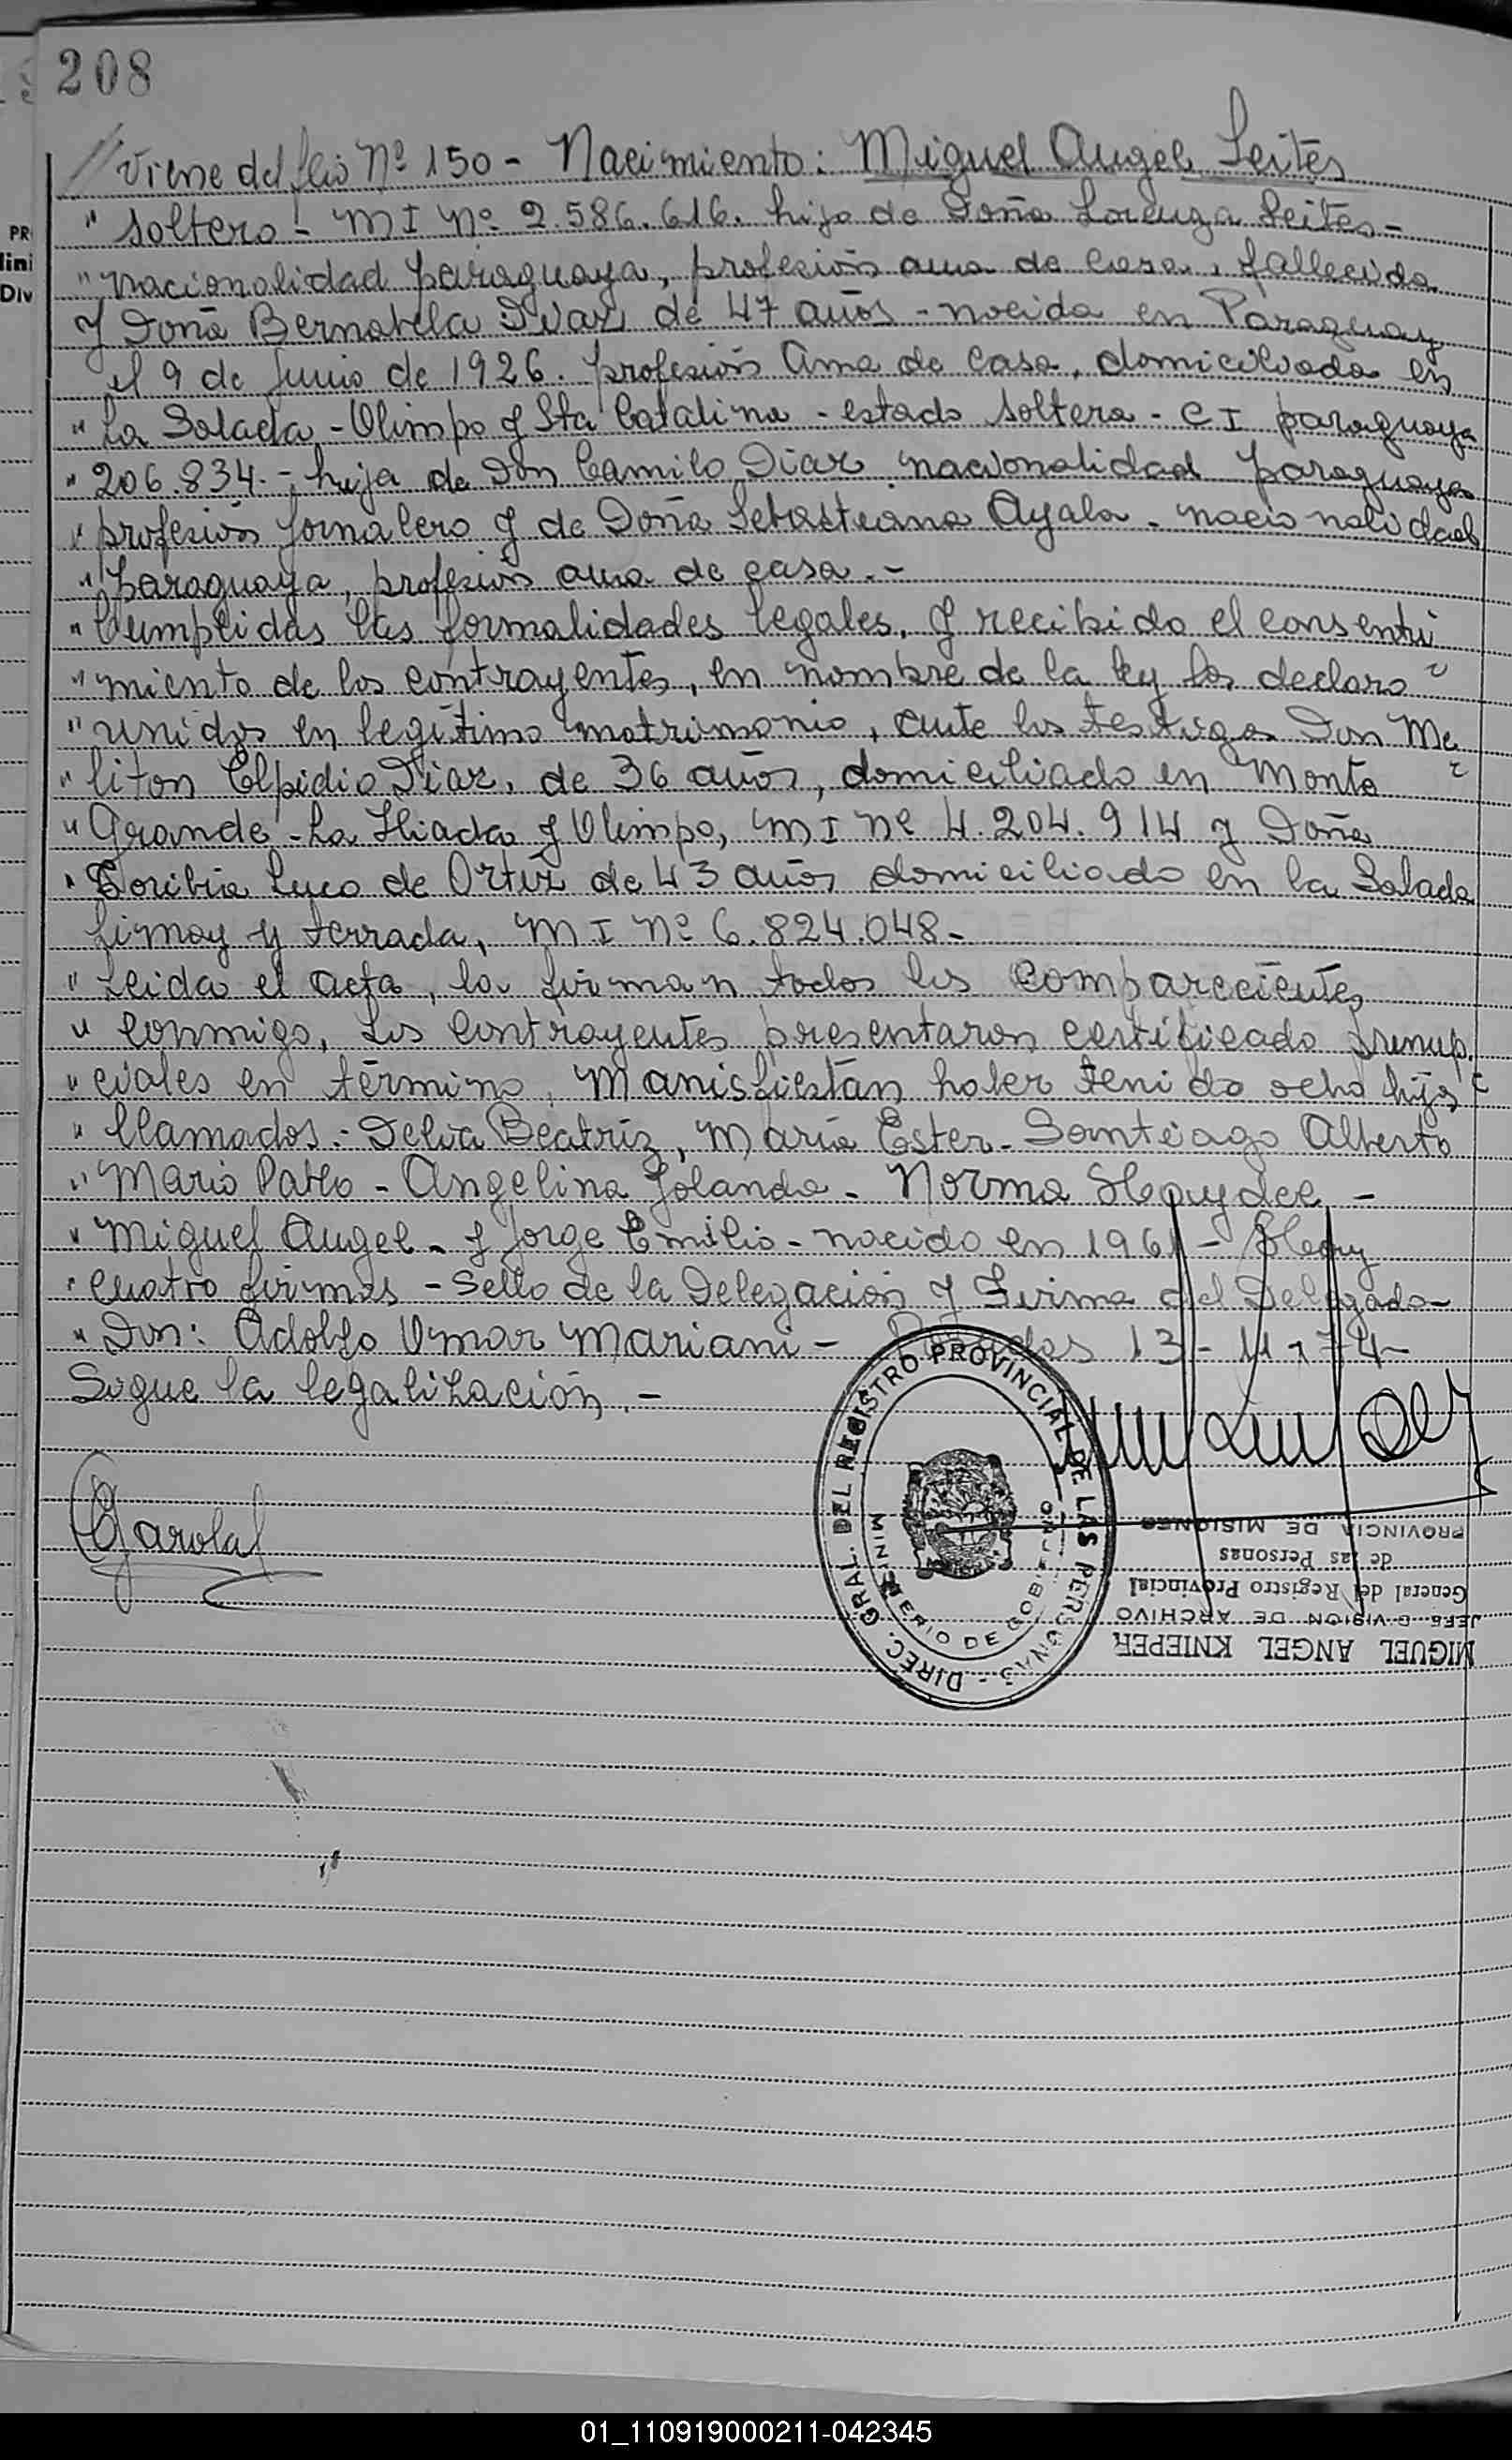 208
// Viene del flio Nº 150 - Nacimiento: Miguel Angel Leites
" soltero - M I Nº 2.586.616. hijo de Doña Lorenza Leites -
" nacionalidad paraguaya, profesión ama de casa, fallecida
y Doña Bernabela Diaz de 47 años - nacida en Paraguay
el 9 de Junio de 1926. profesión Ama de Casa, domiciliada en
" La Salada - Olimpo y Sta Catalina - estado soltera - C I paraguaya
" 206.834.-, hija de Don Camilo Diaz nacionalidad paraguaya
" profesión Jornalero y de Doña Sebasteana Ayala - nacionalidad
" paraguaya, profesión ama de casa.-
" Cumplidas las formalidades legales, y recibido el consenti
" miento de los contrayentes, en nombre de la ley los declaro
" unidos en legítimo matrimonio, ante los testigos Don Me
" liton Elpidio Diaz, de 36 años, domiciliado en Monte
" Grande - La Iliada y Olimpo, M I Nº 4.204.914 y Doña
" Toribia de Ortiz de 43 años domiciliado en la Salada
Limay y terrada, M I Nº 6.824.048-
" Leida el acta, la firman todos los comparecientes
" conmigo, Los contrayentes presentaron certificado prenup.
" ciales en término, Manisfiestan haber tenido ocho hijos
" llamados:- Delia Beatriz, María Ester - Santiago Alberto
" Mario Pablo - Angelina Jolanda - Norma Haydee -
" Miguel Angel - y Jorge Emilio - nacido en 1961 - Hay
" cuatro firmas - Sello de la Delegación y Firma del Delegado-
" Don: Adolfo Omar Mariani - Posadas 13-11-74-
Sigue la legalización.-
DIREC. GRAL. DEL REGISTRO PROVINCIAL DE LAS PERSONAS -
MINISTERIO DE GOBIERNO
MIGUEL ANGEL KNIEPER
JEFE DIVISION DE ARCHIVO
General del Registro Provincial
de las Personas
PROVINCIA DE MISIONES
PR
ini
Div
01_110919000211-042345